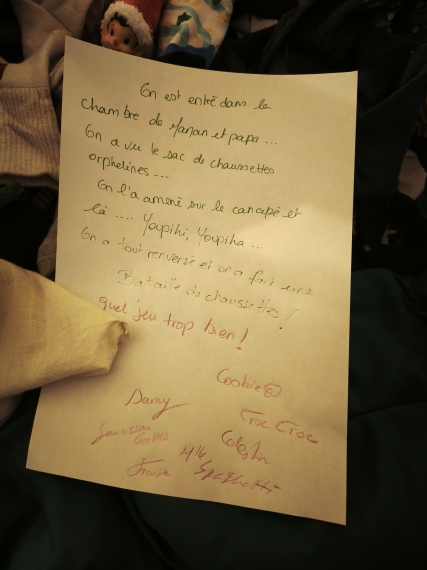 On est entré dans la
chambre de Maman et papa ...
On a vu le sac de chaussettes
orphelines ...
On l'a amené sur le canapé et
là .... Youpihi, Youpiha ...
On a tout renversé et on a fait une
Bataille de chaussettes !
quel jeu trop bien !
Cookie
Damy
Croc Croc
Celesta
Spaghetti
Fraise